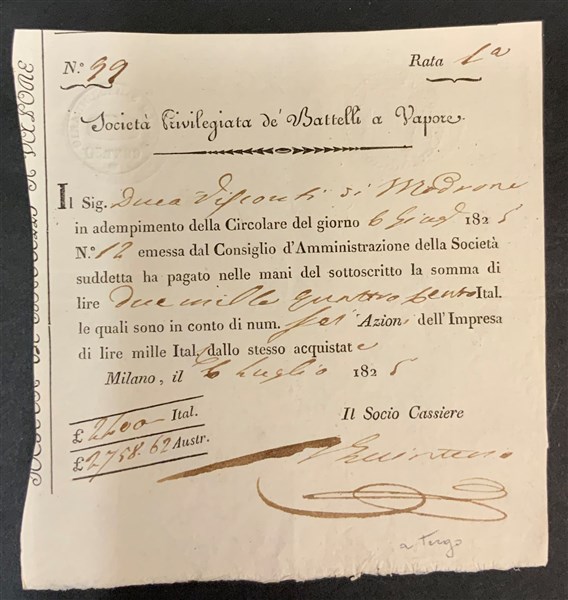 N.° 99 Rata 1ª
Società Privilegiata de' Battelli a Vapore.
Il Sig. Duca Visconti di Modrone
in adempimento della Circolare del giorno 6 Giug 1825
N.° 12 emessa dal Consiglio d'Amministrazione della Società
suddetta ha pagato nelle mani del sottoscritto la somma di
lire due mille quattrocento Ital.
le quali sono in conto di num. sei Azioni dell'Impresa
di lire mille Ital. dallo stesso acquistate
Milano, il 6 Luglio 1825
£ 2400 Ital.
£ 2758.62 Austr.
Il Socio Cassiere
a tergo